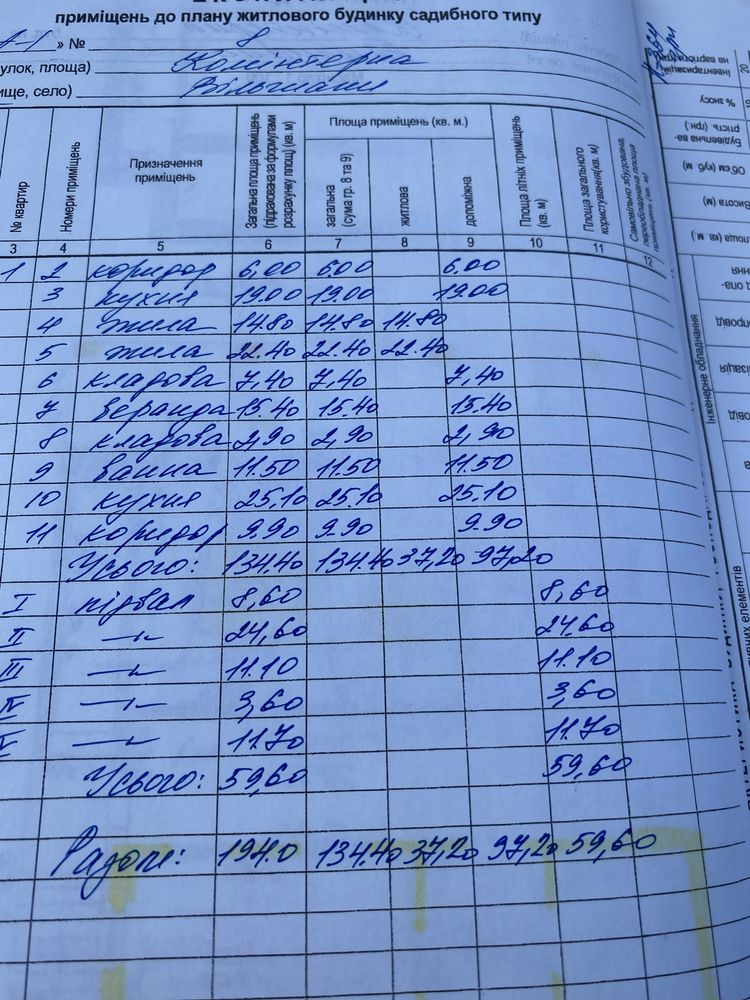 приміщень до плану житлового будинку садибного типу
А-І » № 8
улок, площа) Комінтерна
ище, село) Вільшани
№ квартир
Номери приміщень
Призначення приміщень
Загальна площа приміщень (підрахована за формулами розрахунку площ) (кв. м)
Площа приміщень (кв. м.)
загальна (сума гр. 8 та 9)
житлова
допоміжна
Площа літніх приміщень (кв. м)
Площа загального користування(кв. м)
Самовільно збудована, переобладнана площа приміщень (кв. м)
3 4 5 6 7 8 9 10 11 12
1 2 коридор 6,00 6.00 6.00
3 кухня 19.00 19.00 19.00
4 жила 14.80 14.80 14.80
5 жила 22.40 22.40 22.40
6 кладова 7,40 7,40 7,40
7 веранда 15.40 15.40 15.40
8 кладова 2,90 2,90 2,90
9 ванна 11.50 11.50 11.50
10 кухня 25.10 25.10 25.10
11 коридор 9.90 9.90 9.90
Усього: 134.40 134.40 37,20 97,20
I підвал 8,60 8,60
II —"— 24,60 24.60
III —"— 11.10 11.10
IV —"— 3,60 3,60
V —"— 11.70 11.70
Усього: 59,60 59,60
Разом: 194.0 134.40 37,20 97,20 59,60
Інвентаризаційна
на варто
% зносу
Будівельна ва
ртість (грн.)
Об'єм (куб. м)
Висота (м)
лоща (кв. м.)
Інженерне обладнання